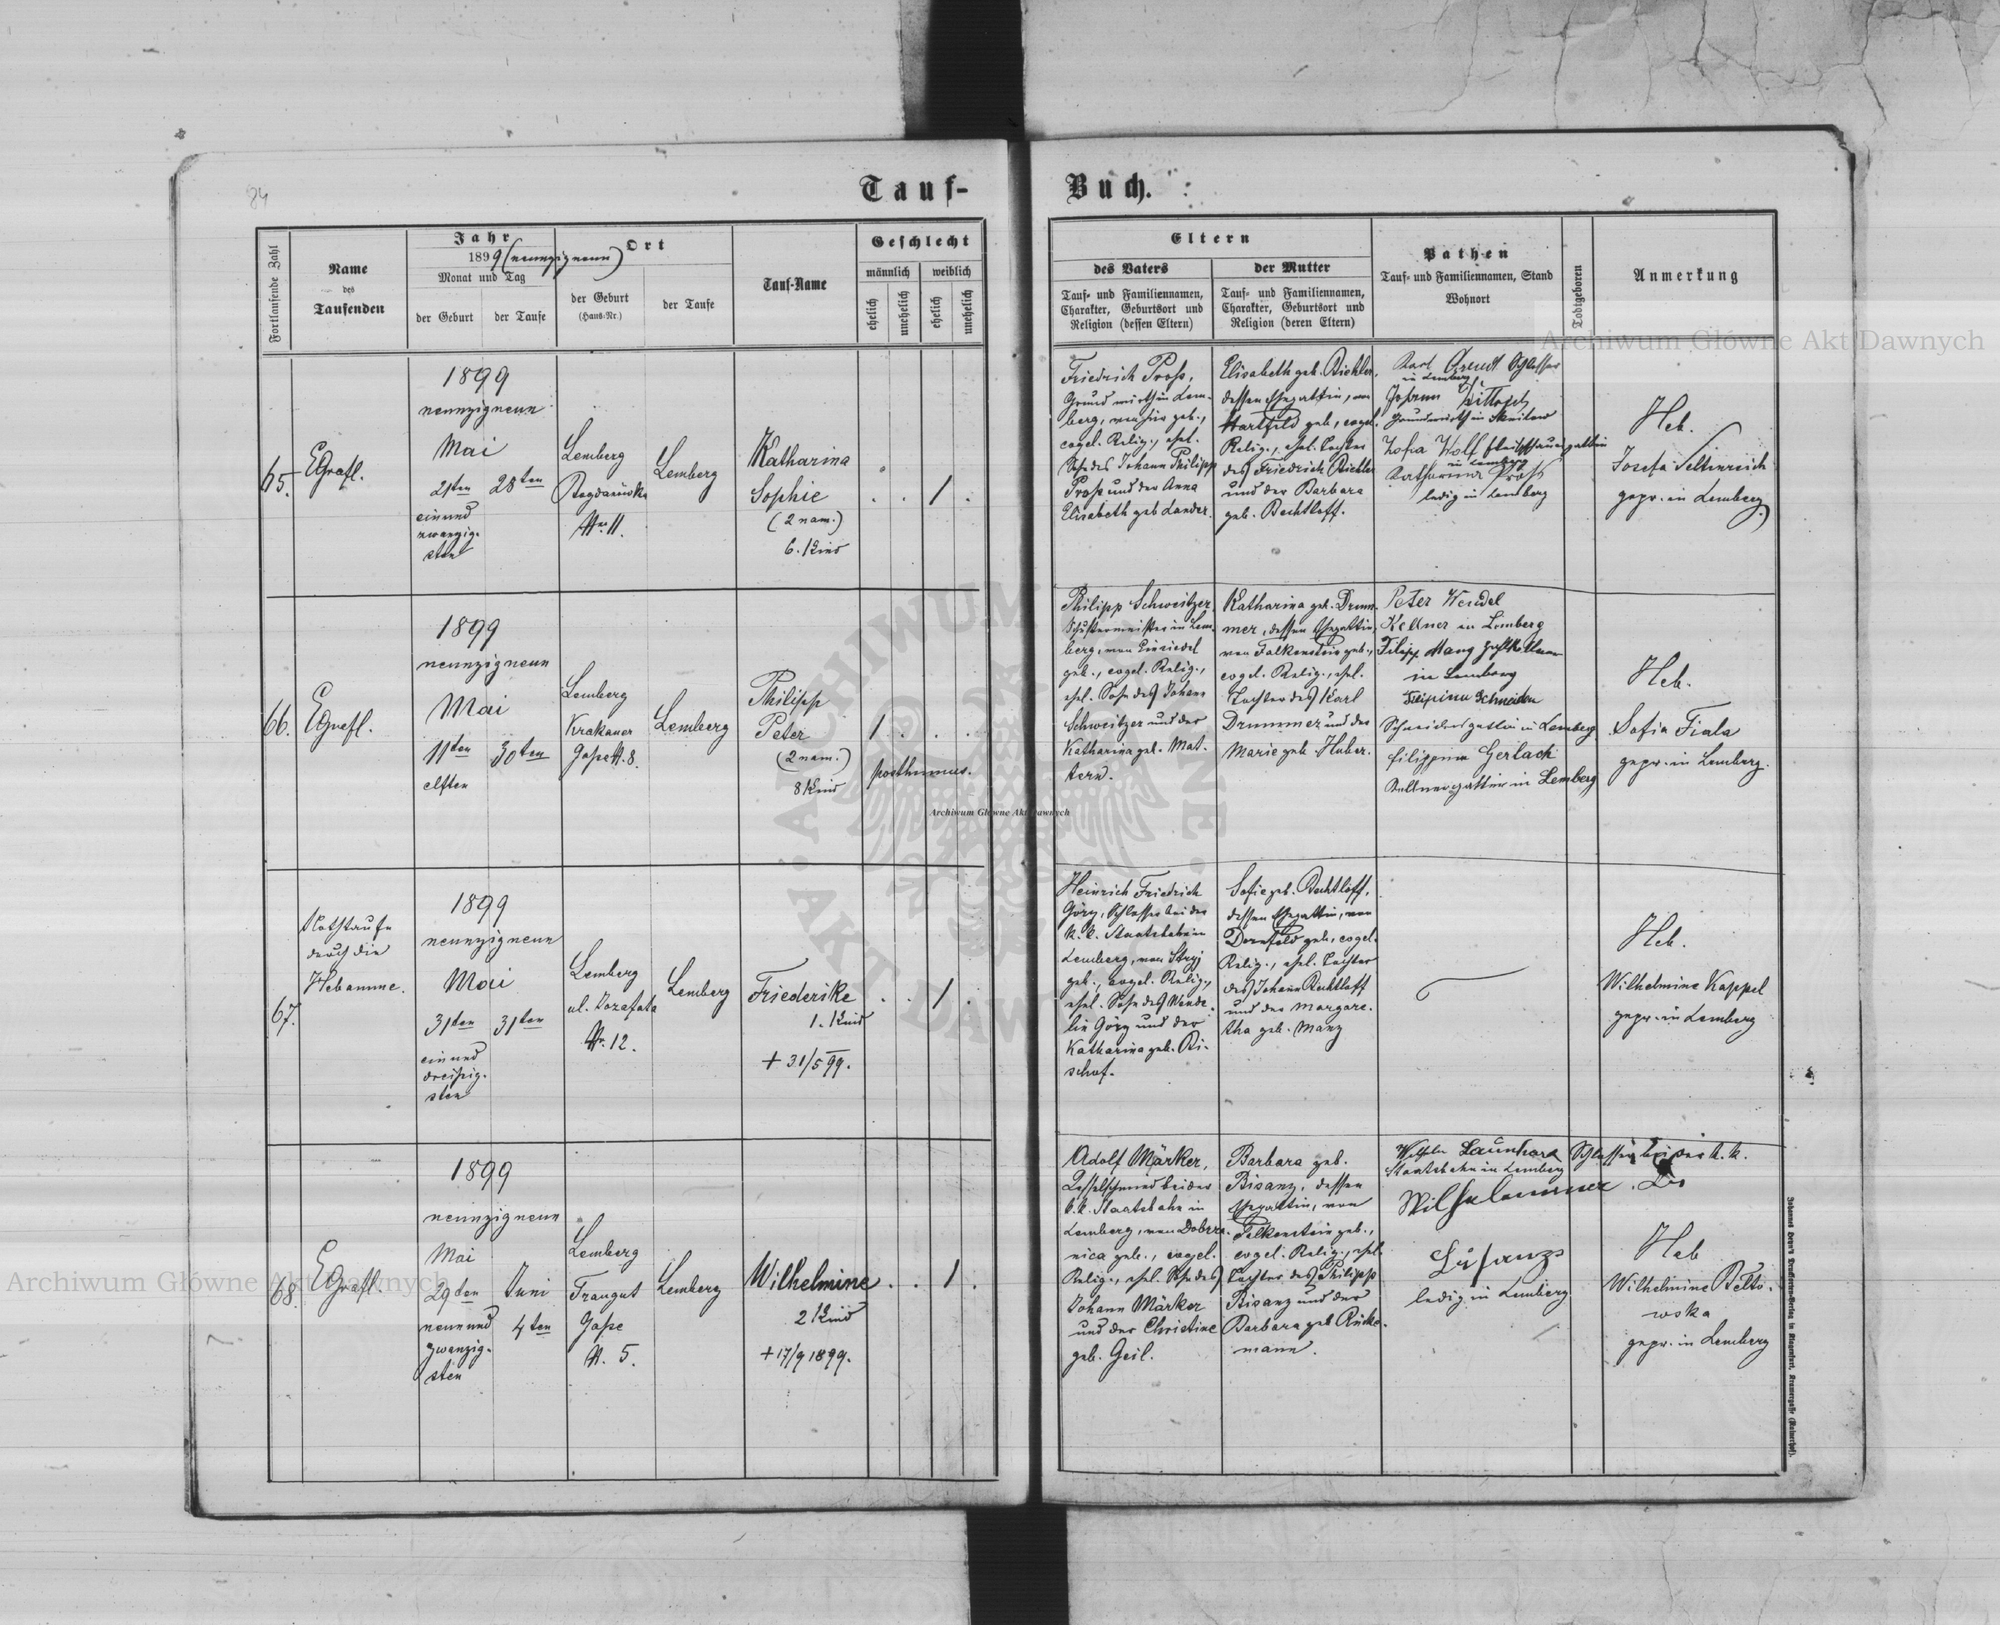 84
Tauf-
Buch.
Fortlaufende Zahl
Name
des
Taufenden
Jahr
1899 (neunzigneun)
Monat und Tag
der Geburt
der Taufe
Ort
der Geburt
(Haus-Nr.)
der Taufe
Tauf-Name
Geschlecht
männlich
weiblich
ehelich
unehelich
ehelich
unehelich
Eltern
des Vaters
der Mutter
Tauf- und Familiennamen,
Charakter, Geburtsort und
Religion (dessen Eltern)
Tauf- und Familiennamen,
Charakter, Geburtsort und
Religion (deren Eltern)
Pathen
Tauf- und Familiennamen, Stand
Wohnort
Todtgeboren
Anmerkung
65.
EGrafl.
1899
neunzigneun
Mai
21ten
28ten
einund
zwanzig-
sten
Lemberg
Bogdanówka
Nr 11.
Lemberg
Katharina
Sophie
(2 nam.)
6. Kind
1
Friedrich Pross,
Grundwirth in Lem-
berg, von hier geb.,
evgel. Relig., ehel.
Sohn des Johann Philipp
Pross und der Anna
Elisabeth geb Lander.
Elisabeth geb. Bichler,
dessen Ehegattin, von
Hartfeld geb, evgel.
Relig., ehel. Tochter
des Friedrich Bichler
und der Barbara
geb. Bechtloff.
Karl Arendt Schlosser
in Lemberg
Johann
Grundwirth in
Zofia Wolf
in Lemberg
Katharina Pross
ledig in Lemberg
Heb.
Josefa Seltenreich
gepr. in Lemberg.
66.
EGrafl.
1899
neunzigneun
Mai
11ten
30ten
elften
Lemberg
Krakauer
Gasse N. 8.
Lemberg
Philipp
Peter
(2 nam.)
8 Kind
1
posthumus.
Philipp Schweitzer,
Schustermeister in Lem-
berg, von Einsiedel
geb., evgel. Relig.,
ehel. Sohn des Johann
Schweitzer und der
Katharina geb. Mat-
tern.
Katharina geb. Drum-
mer, dessen Ehegattin,
von Falkenstein geb.,
evgel. Relig., ehel.
Tochter des Karl
Drummer und der
Marie geb. Huber.
Peter Wendel
Kellner in Lemberg
Filipp Mang Zahlkellner
in Lemberg
Filipina Schneider
Schneidersgattin in Lemberg
Filippina Gerlach
Kellnergattin in Lemberg
Heb.
Sofia Fiala
gepr. in Lemberg.
67.
Nothtaufe
durch die
Hebamme.
1899
neunzigneun
Mai
31ten
31ten
einund
dreissig-
sten
Lemberg
ul. Jozafata
Nr. 12.
Lemberg
Friederike
1. Kind
+ 31/5 99.
1
Heinrich Friedrich
Görg, Schlosser bei der
k. k. Staatsbahn in
Lemberg, von Stryj
geb., evgel. Relig.,
ehel. Sohn des Wende-
lin Görg und der
Katharina geb. Bi-
schof.
Sofie geb. Bechtloff,
dessen Ehegattin, von
Dornfeld geb., evgel.
Relig., ehel. Tochter
des Johann Bechtloff
und der Margare-
tha geb. Manz
Heb.
Wilhelmine Kappel
gepr. in Lemberg
68.
EGrafl.
1899
neunzigneun
Mai
29ten
Juni
4ten
neunund
zwanzig-
sten
Lemberg
Traugut
Gasse
N. 5.
Lemberg
Wilhelmine
2 Kind
+ 17/9 1899.
1
Adolf Märker,
Kesselschmied bei der
k.k. Staatsbahn in
Lemberg, von Dobrza-
nica geb., evgel.
Relig., ehel. Sohn des
Johann Märker
und der Christine
geb. Geil.
Barbara geb.
Bisanz, dessen
Ehegattin, von
Falkenstein geb.,
evgel. Relig., ehel.
Tochter des Philipp
Bisanz und der
Barbara geb Rücke-
mann.
Launhard Schlosser bei der k. k.
Staatsbahn in Lemberg
ledig in Lemberg
Heb
Wilhelmine Bełto-
wska
gepr. in Lemberg
Archiwum Główne Akt Dawnych
Archiwum Główne Akt Dawnych
Archiwum Główne Akt Dawnych